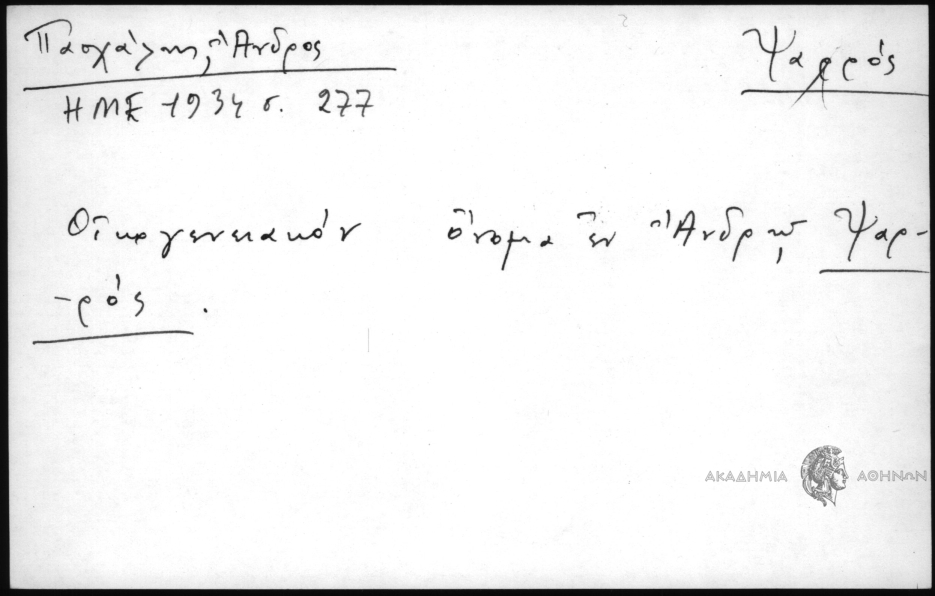 Πασχάλης, Ἄνδρος
Ψαρρός
ΗΜΕ 1934 σ. 277
Οἰκογενειακόν ὄνομα ἐν Ἄνδρῳ, Ψαρ-
-ρός.
ΑΚΑΔΗΜΙΑ ΑΘΗΝΩΝ